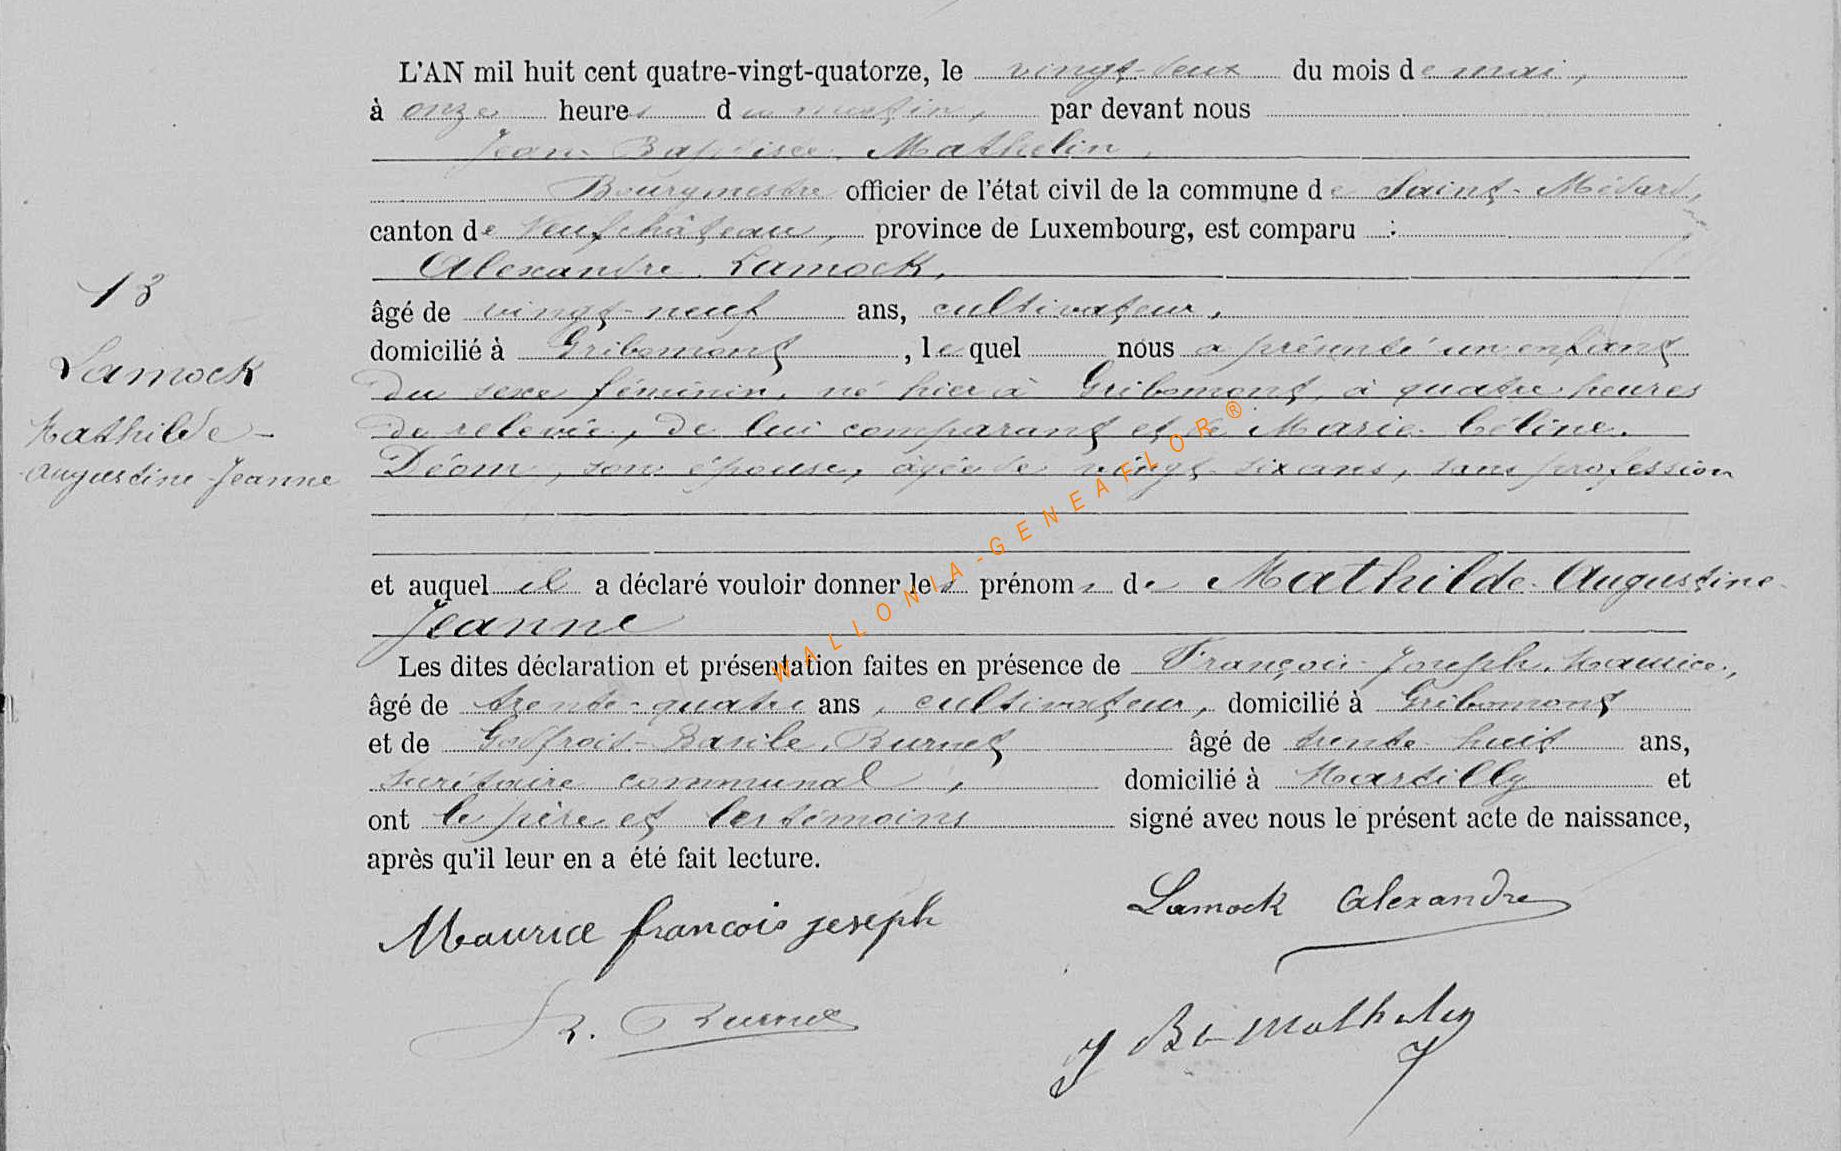 L'AN mil huit cent quatre-vingt-quatorze, le vingt-deux du mois de mai,
à onze heures du matin, par devant nous
Jean-Baptiste Mathelin,
Bourgmestre officier de l'état civil de la commune de Saint-Médard,
canton de Neufchâteau, province de Luxembourg, est comparu :
Alexandre Lamock,
âgé de vingt-neuf ans, cultivateur,
domicilié à Gribomont, lequel nous a présenté un enfant
du sexe féminin, né hier à Gribomont, à quatre heures
de relevée, de lui comparant et de Marie-Céline
Déom, son épouse, âgée de vingt-six ans, sans profession
et auquel il a déclaré vouloir donner les prénoms de Mathilde-Augustine-
Jeanne
Les dites déclaration et présentation faites en présence de François-Joseph Maurice,
âgé de trente-quatre ans, cultivateur, domicilié à Gribomont
et de Godfroid-Basile Burnet âgé de trente-huit ans,
secrétaire communal, domicilié à Martilly et
ont le père et les témoins signé avec nous le présent acte de naissance,
après qu'il leur en a été fait lecture.
13
Lamock
Mathilde-
Augustine-Jeanne
Lamock Alexandre
Maurice francois joseph
Burnet
J Bte Mathelin
WALLONIA-GENEAFLOR®